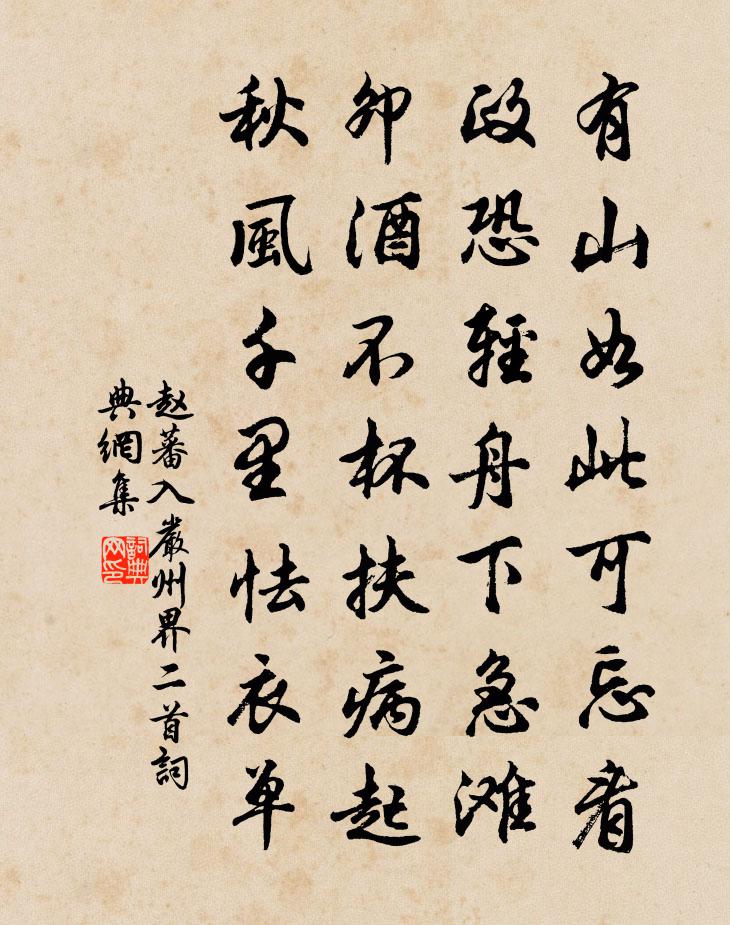 有山如此可忘看
政恐輕舟下急滩
卯酒不杯扶病起
秋風千里怯衣单
赵蕃入嚴州界二首詞
典網集
詞典
网印